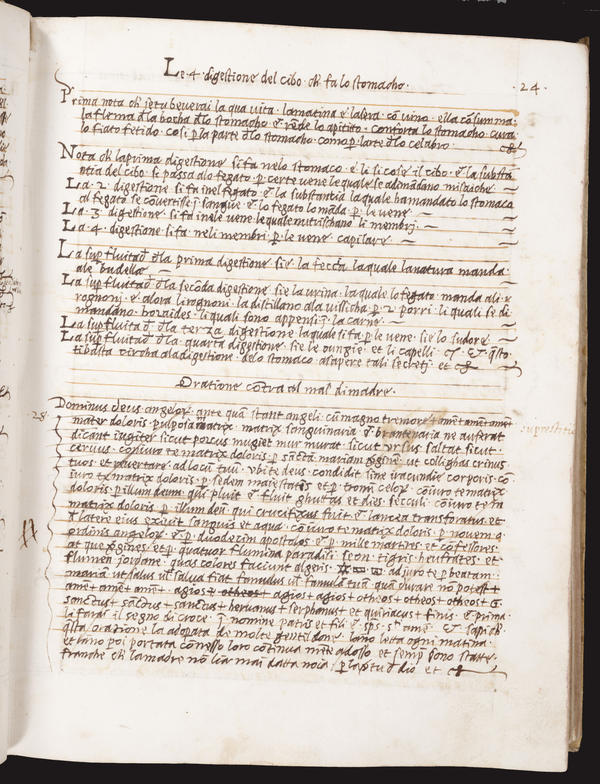 Le 4 digestione del cibo che fa lo stomacho.
24.
Prima nota che se tu beverai la qua vita la matina e la sera cō vino ella cōsumma
la flema dla bocha dlo stomacho e rēde lo apitito conforta lo stomacho cura
lo fiato fetido cosi p la parte dlo stomacho como p la rte dlo celabro.
Nota che la prima digestione si fa nelo stomaco e li si cose il cibo e la substā
ntia del cibo si passa alo fegato p certe vene le quale se adimādano misaiche
La 2 digestione si fa inel fegato e la substantia la quale ha mandato lo stomaco
al fegato se cōvertisse ī sangue e lo fegato lo māda p le vene
La 3 digestione si fa in ele vene le quale nutrischano li membri
La 4 digestione si fa neli membri p le vene capilare
La supfluita dla prima digestione sie la feccia la quale la natura manda
ale budella
La supfluita dla secōda digestione sie la urina la quale lo fegato manda ali r
rognoni e alora li rognoni la distillano ala vissicha p 2 porri li quali se di
mandano li quali sono appensi ī la carne
La supfluita dla terza digestione la quale si fa p le vene sie lo sudore
La supfluitad dla quarta digestione sie le oungie et li capelli et qsto
ti basta circha ala digestione delo stomaco a sapere tali secreti et
Oratione cōtra al mal di madre.
28
Dominus deus angelor ante quā stant angeli cū magno tremore + amē + amē + amē
mater doloris pulposa matrix matrix sanguinaria ne auferat
dicant iugiter sicut porcus mugiet mur murat sicut ursus saltat sicut
cervus coniuro te matrix doloris p sāctā mariam ut collighas crinus
tuos et revertare ad locū tuū ubi te deus condidit sine iracundie corporis cō
iuro te matrix doloris p sedem maiestatis et p tronū celor coniuro te matrix
doloris p illum deum qui pluit e fluit ghuttas et dies secculi coniuro te m
matrix doloris p illum deū qui crucifixus fuit e lancea transforatus et
de latere eius exivit sanguis et aqua coniuro te matrix doloris p novem
ordinis angelor e p duodecim apostolos e p mille martires et cōfessores
at que et p quatuor flumina paradisi geon tigris heufrates et
flumen jordane quas colores faciunt algeris adjuro te p beatam
mariā ut salus ut salva fiat famulus ut famula tua quā durare no potest +
amē + amē + amē + agios + otheos + agios + agios + otheos + otheos + otheos
sanctus + sanctus + sanctus + + serphanus + et quiriacus + finis e prima
li farai il segno di croce ī nomine patris et filii e sps sti amē et sapi che
qsta oratione la adopata de molte gentil done lano letta ogni matina
et lano poi portata cō nesso loro cōtinua mēte adosso et semp sono statte
franche che la madre nō lia mai datta noia p la vtu d dio et